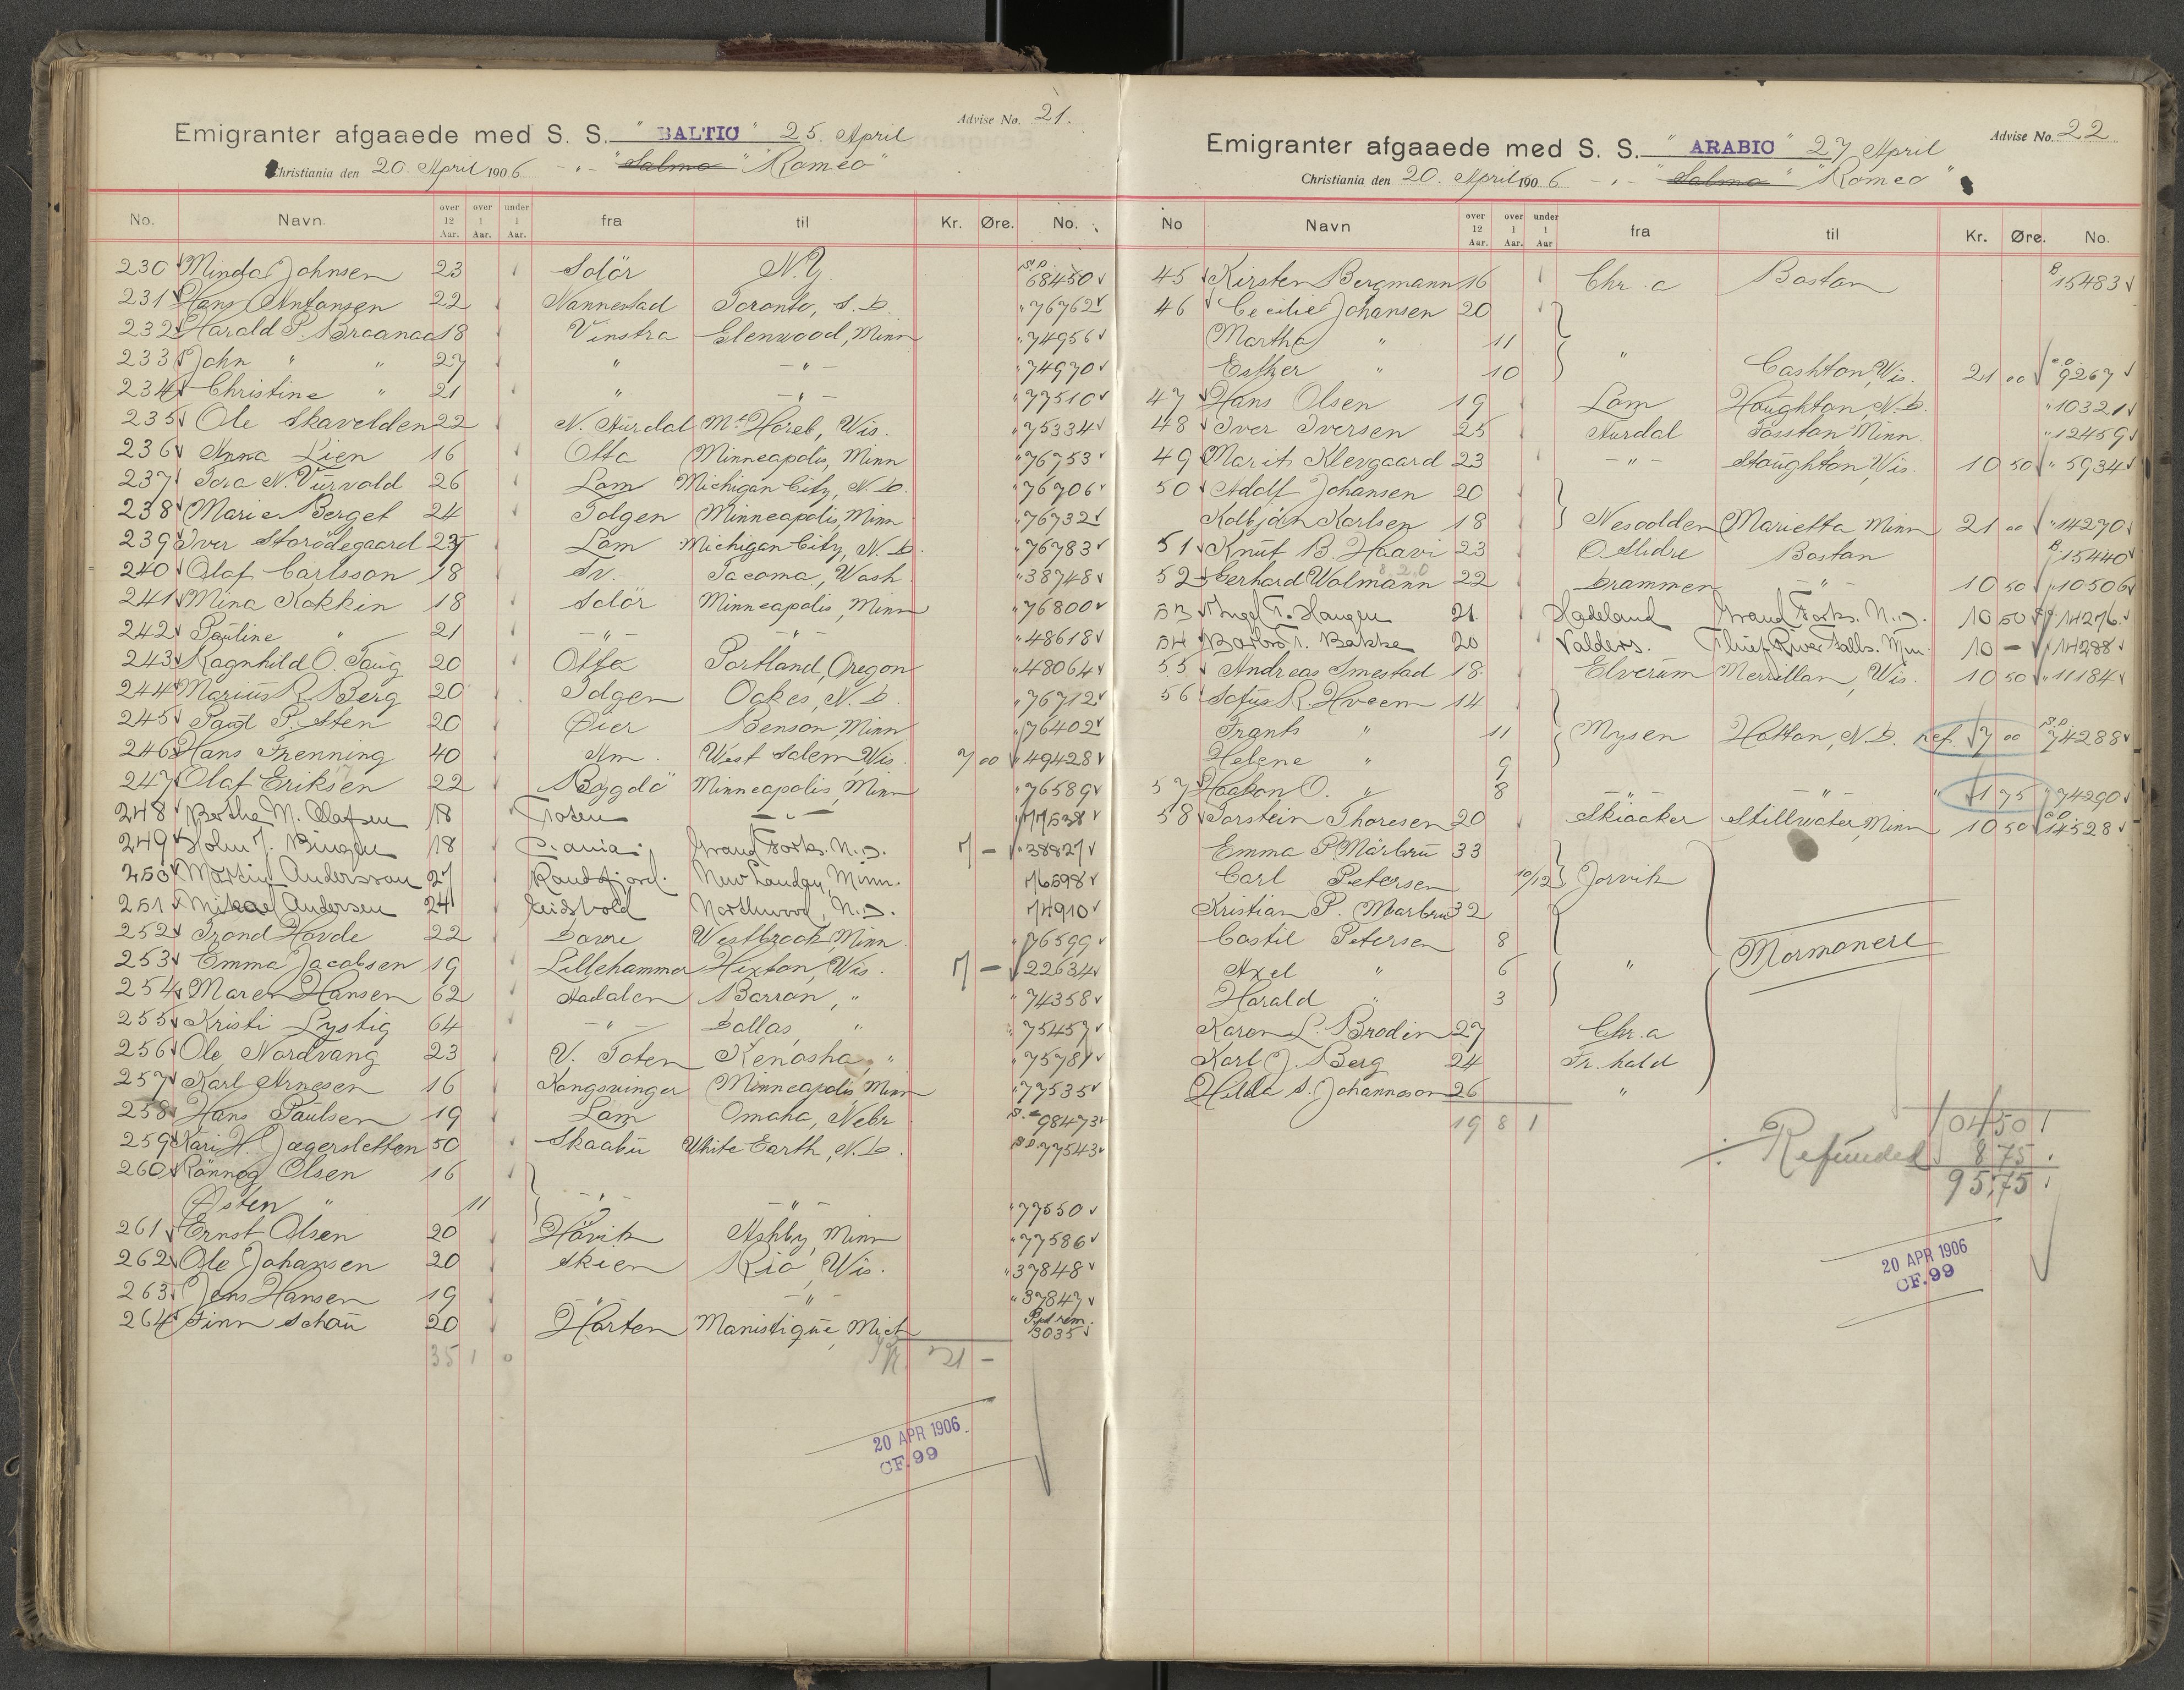 Advise No. 21.
Emigranter afgaaede med S. S. " BALTIC " 25. April
Christiania den 20. April 1906 - " - "Salmo" "Romeo"
No. Navn. over 12 Aar. over 1 Aar. under 1 Aar. fra til Kr. Øre. No.
230 Minda Johnsen 23 Solör N.Y. S.D. 68450
231 Hans Antonsen 22 Nannestad Toronto, S.D. " 76762
232 Harald P. Braanaa 18 Vinstra Glenwood, Minn " 74956
233 John " " 27 " - " - " 74970
234 Christine " 21 " - " - " 77510
235 Ole Skavelden 22 N. Aurdal Mt Horeb, Wis. " 75334
236 Anna Lien 16 Otta Minneapolis, Minn " 76753
237 Tora N. Vurvold 26 Lom Michigan City, N.D. " 76706
238 Marie Berget 24 Tolgen Minneapolis, Minn " 76732
239 Iver Storödegaard 27 Lom Michigan City, N.D. " 76783
240 Olaf Carlsson 18 Sv. Tacoma, Wash " 38748
241 Mina Kokkin 18 Solör Minneapolis, Minn " 76800
242 Pauline " 21 - " - - " - " 48618
243 Ragnhild O. Taug 20 Otta Portland, Oregon " 48064
244 Marius R. Berg 20 Tolgen Oakes, N.D. " 76712
245 Paul P. Sten 20 Øier Benson, Minn " 76402
246 Hans Frenning 40 Am. West Salem, Wis. 7 00 " 49428
247 Olaf Eriksen 22 Bygdö Minneapolis, Minn " 76589
248 Berthe M. Olafsen 18 Toten - " - " 77538
249 John J. Bingen 18 X.ania. Grand Forks. N.D. 7 - " 38827
250 Martin Anderssen 27 Randsfjord. New London, Minn. 76598
251 Mikael Andersen 24 Eidsvold Northwood, N.D. 74910
252 Trond Hovde 22 Dovre Westbrook, Minn. " 76599
253 Emma Jacobsen 19 Lillehammer Hixton, Wis. 7 - 22634
254 Maren Hansen 62 Aadalen Barron, " " 74358
255 Kristi Lystig 64 - " - Dallas, " " 75457
256 Ole Nordvang 23 V. Toten Kenosha, " " 75781
257 Karl Arnesen 16 Kongsvinger Minneapolis, Minn " 77535
258 Hans Paulsen 19 Lom Omaha, Nebr 98473
259 Kari H. Jægersletten 50 Skaabu White Earth, N.D. S.D. 77543
260 Rönnog Olsen 16
Østen " 11 - " - - " - " 77550
261 Ernst Olsen 20 Hövik Ashby, Minn " 77586
262 Ole Johansen 20 Skien Rio, Wis. " 37848
263 Jens Hansen 19 - " - - " - " 37847
264 Finn Schau 20 Horten Manistique, Mich 3035
35 1 0 21 -
20 APR 1906
CF.99
Advise No. 22
Emigranter afgaaede med S. S. " ARABIC " 27 April
Christiania den 20. April 1906 - " - "Salmo" "Romeo"
No Navn over 12 Aar. over 1 Aar. under 1 Aar fra til Kr. Øre. No.
45 Kirsten Bergmann 16 Chr.a Boston B 15483
46 Cecilie Johansen 20
Martha " 11
Esther " 10 " Cashton, Wis. 21 00 9267
47 Hans Olsen 19 Lom Houghton, N.D. " 10321
48 Iver Iversen 25 Aurdal Fosston Minn. " 12459
49 Marit Klevgaard 23 - " - Stoughton, Wis. 10 50 " 5934
50 Adolf Johansen 20
Kolbjörn Karlsen 18 Nesodden Marietta Minn 21 00 " 14270
51 Knut B. Haavi 23 Ö Slidre Boston B 15440
52 Gerhard Wolmann 22 Drammen - " - 10 50 " 10506
53 Inga T. Haugen 21 Hadeland Grand Forks. N.D. 10 50 14276
54 Barbro T. Bakke 20 Valders. Thief River Falls. Min. 10 - 14288
55 Andreas Smestad 18 Elverum Merrillan, Wis. 10 50 " 11184
56 Sofus R. Hveem 14
Frants " 11 Mysen Hatton, N.D. Ref. 7 00 S.D. 74288
Helene " 9
57 Haakon O. " 8 - " - - " - " 1 75 " 74290
58 Torstein Thoresen 20 Skiaaker Stillwater, Minn 10 50 14528
Emma P. Marbru 33
Carl Petersen 10/12 Jorvik
Kristian P. Marbru 32
Costil Petersen 8 "
Axel " 6 "
Harald " 3
Mormonere
Karen L. Brodin 27 Chr.a
Karl J. Berg 24 Fr.hald
Hilda S. Johannson 26 "
19 8 1
104 50
÷ Refunded 8 75
95,75
20 APR 1906
CF.99